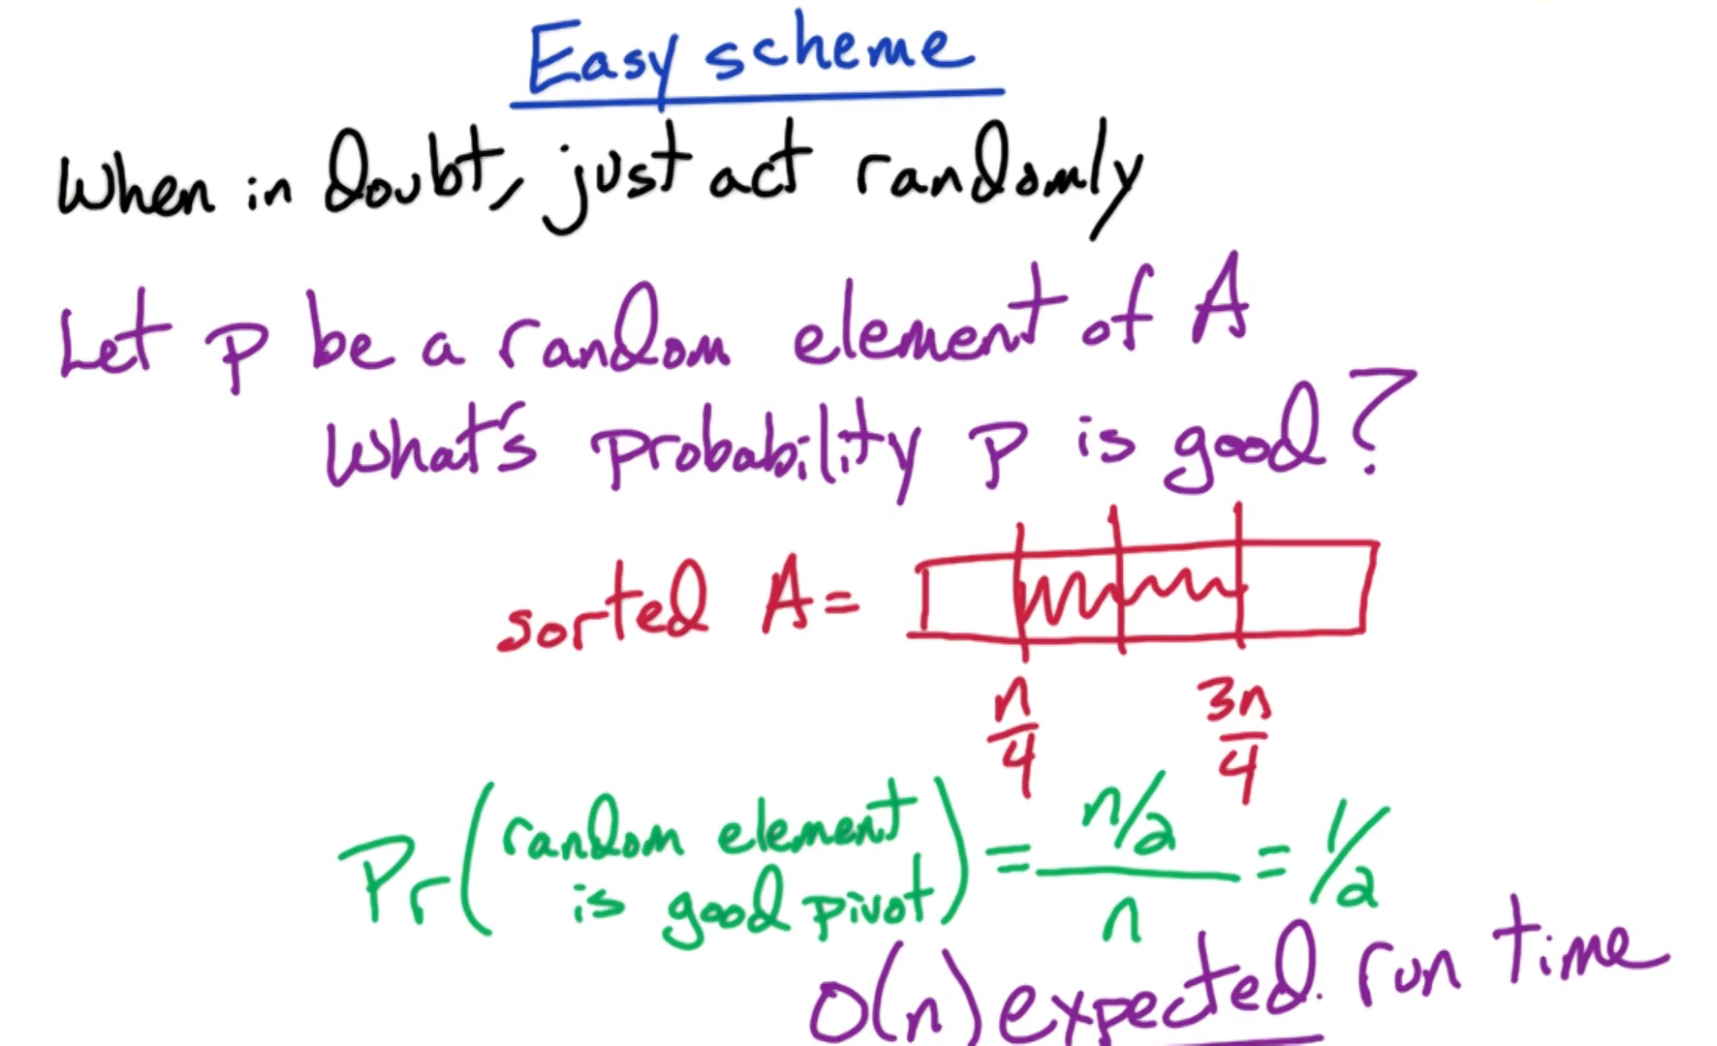 Easy scheme
When in doubt, just act randomly
Let p be a random element of A
What's probability p is good?
sorted A =
n/4 3n/4
Pr(random element is good pivot) = n/2 / n = 1/2
O(n) expected run time